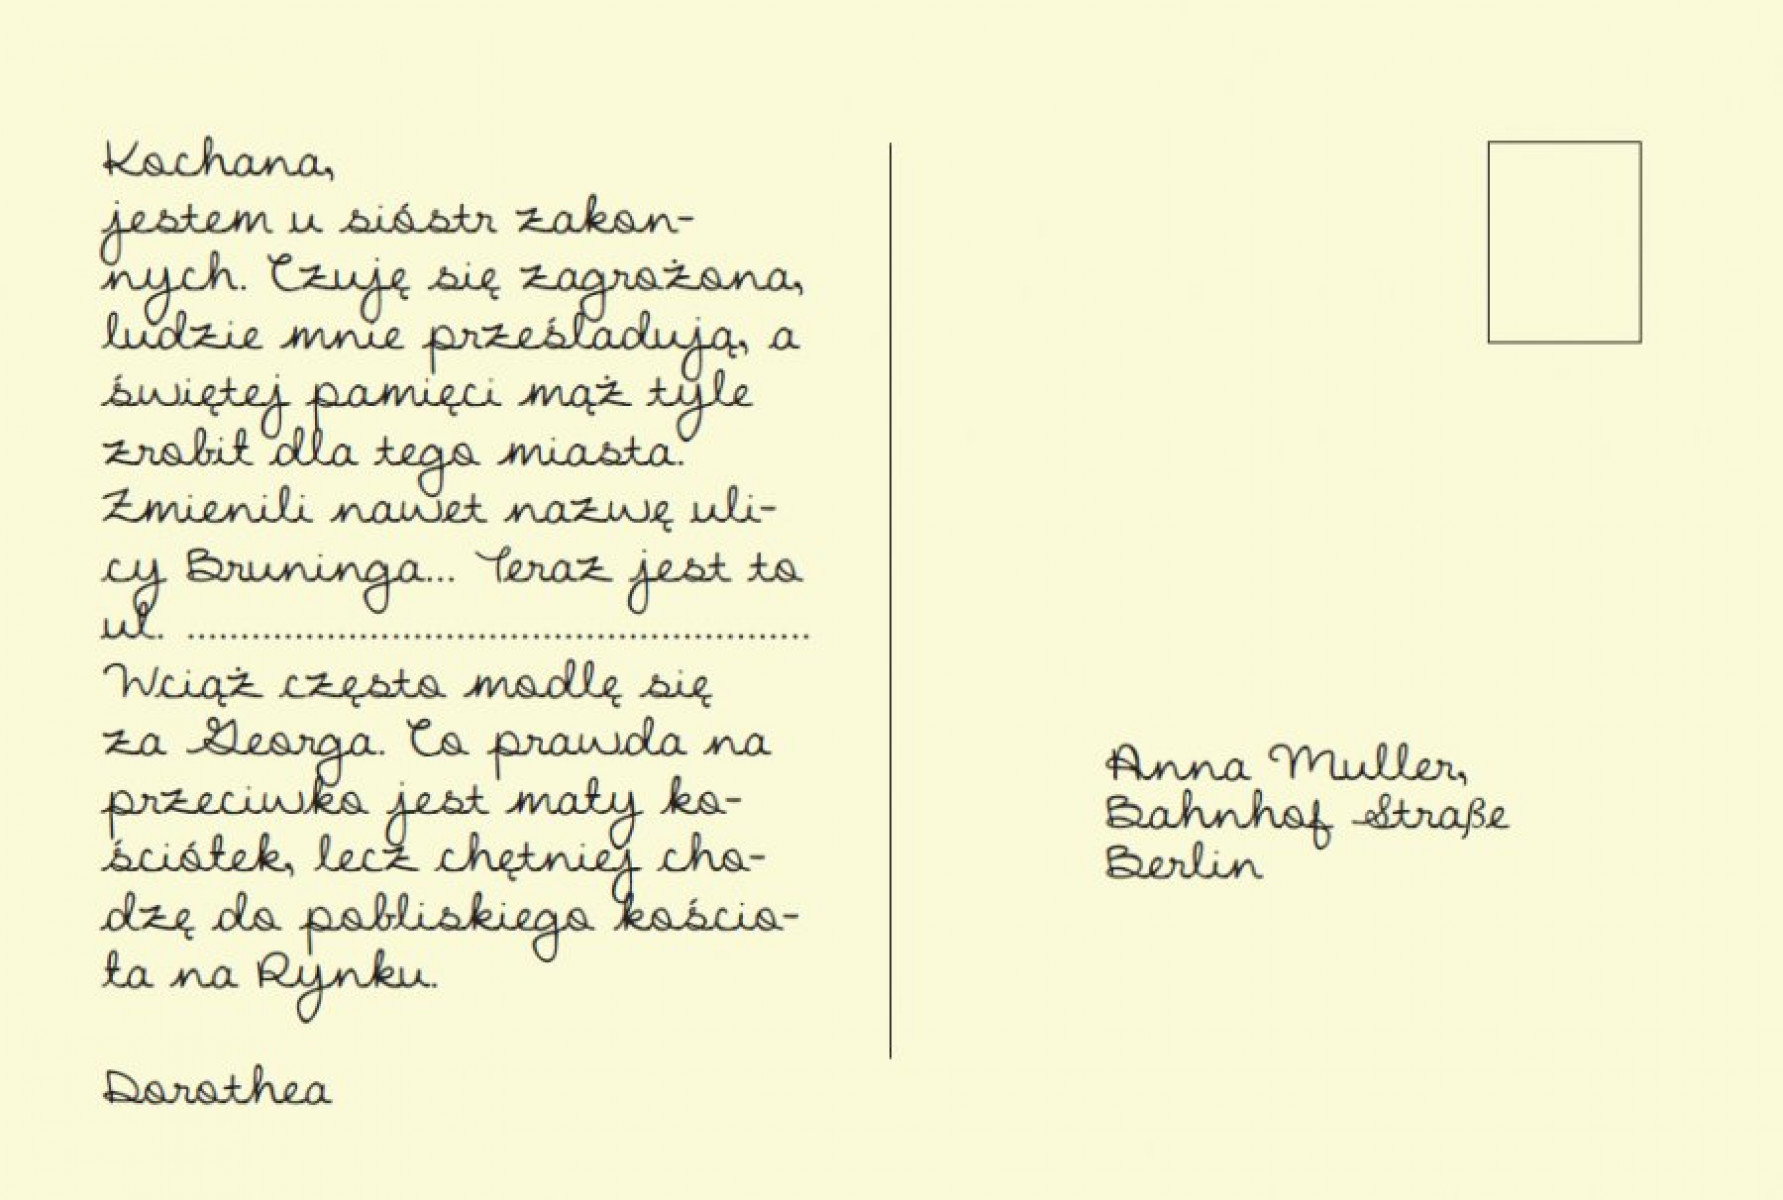 Kochana,
jestem u sióstr zakon-
nych. Czuję się zagrożona,
ludzie mnie prześladują, a
świętej pamięci mąż tyle
zrobił dla tego miasta.
Zmienili nawet nazwę uli-
cy Bruninga... Teraz jest to
ul. ............................................................
Wciąż często modlę się
za Georga. Co prawda na
przeciwko jest mały ko-
ściółek, lecz chętniej cho-
dzę do pobliskiego kościo-
ła na Rynku.
Dorothea
Anna Muller,
Bahnhof Straße
Berlin